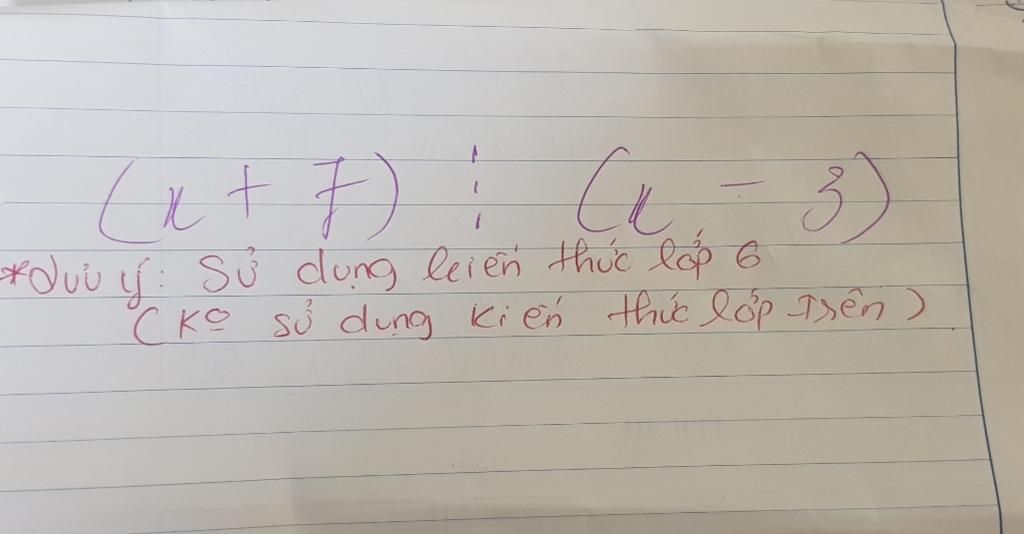 (x + 7) ⋮ (x - 3)
*Lưu ý: Sử dụng kiến thức lớp 6
(Ko sử dụng kiến thức lớp trên)